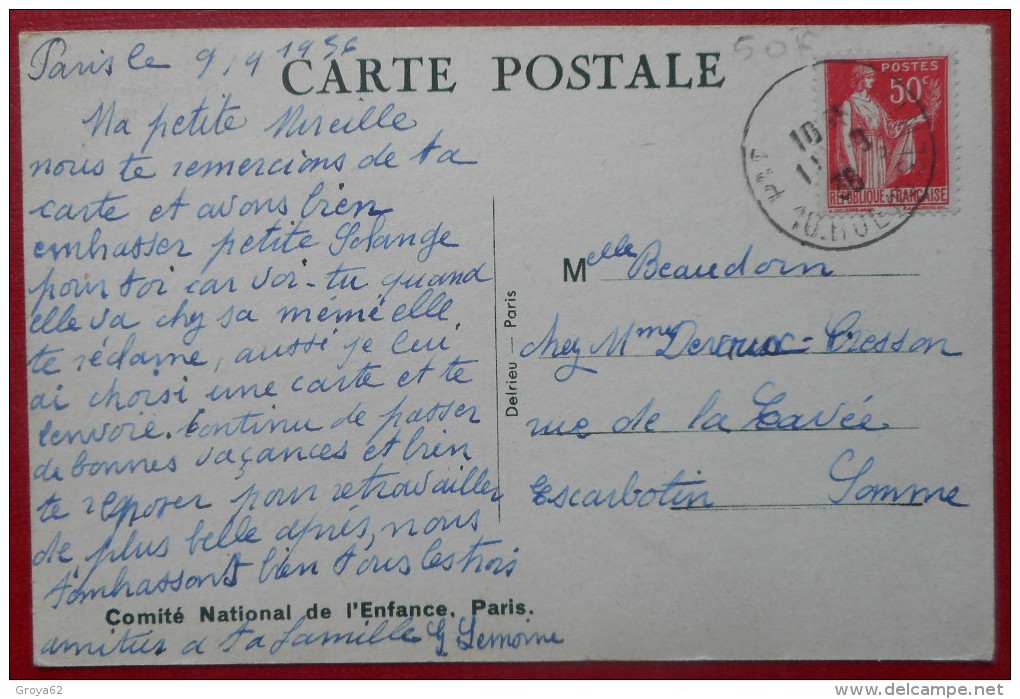 Paris le 9/9 1936
CARTE POSTALE
50F
POSTES
50c
REPUBLIQUE FRANÇAISE
10
11
36
Ma petite Mireille
nous te remercions de ta
carte et avons bien
embrasser petite Solange
pour toi car voi-tu quand
elle va chez sa mémé elle
te réclame, aussi je lui
ai choisi une carte et te
l'envoie. Continue de passer
de bonnes vaçances et bien
te reposer pour retravailler
de plus belle après, nous
t'embrassons bien tous les trois
amitiés a ta famille G Lemoine
Comité National de l'Enfance, Paris.
Delrieu — Paris
Melle Beaudoin
chez Mme Cresson
rue de la Cavée
Escarbotin Somme
Groya62
www.delcampe.net